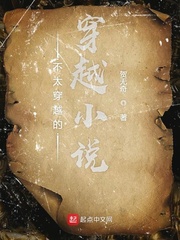 不太穿越的
穿越小说
贺无奇 著
起点中文网